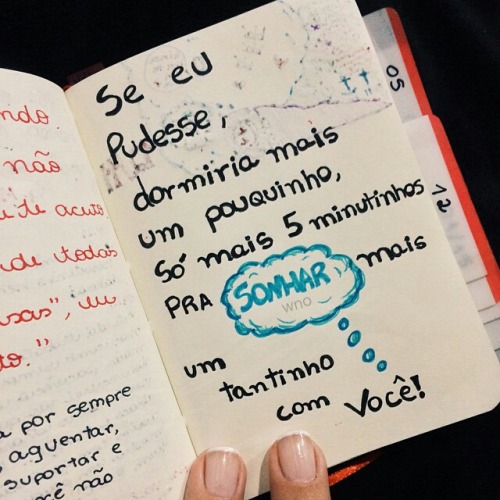 não
de todas
to."
por sempre
aguentar,
suportar e
não
Se eu
Pudesse,
dormiria mais
um pouquinho,
Só mais 5 minutinhos
PRA SONHAR mais
wno
um
tantinho
com Você!
05
12